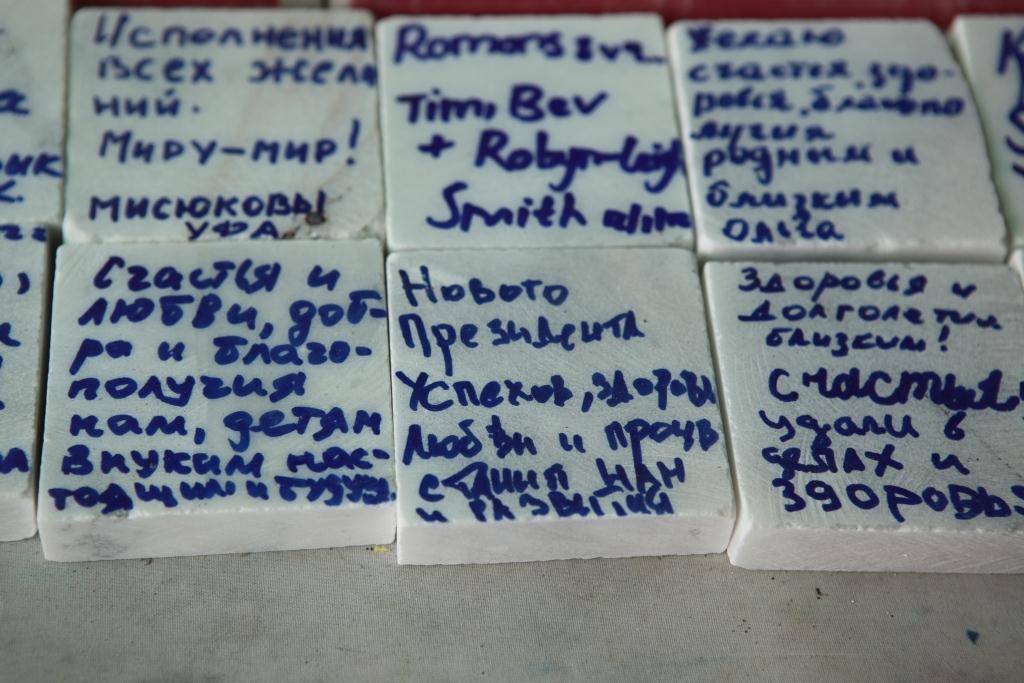 Исполнения
всех жела
ний.
Миру-мир!
Мисюковы
УФА
Romans 8v2
Tim, Bev
+ Robyn-Leigh
Smith
Желаю
счастья, здо-
ровья, благопо
лучия
родным и
близким
Ольга
Счастья и
любви, доб-
ра и благо-
получия
нам, детям
внукам нас-
тоящим и будущ.
Нового
Президента
Успехов, здоровь
Любви и процв
и развития
Здоровья и
долголетия
близким!
Счастья,
удачи в
делах и
здоровья